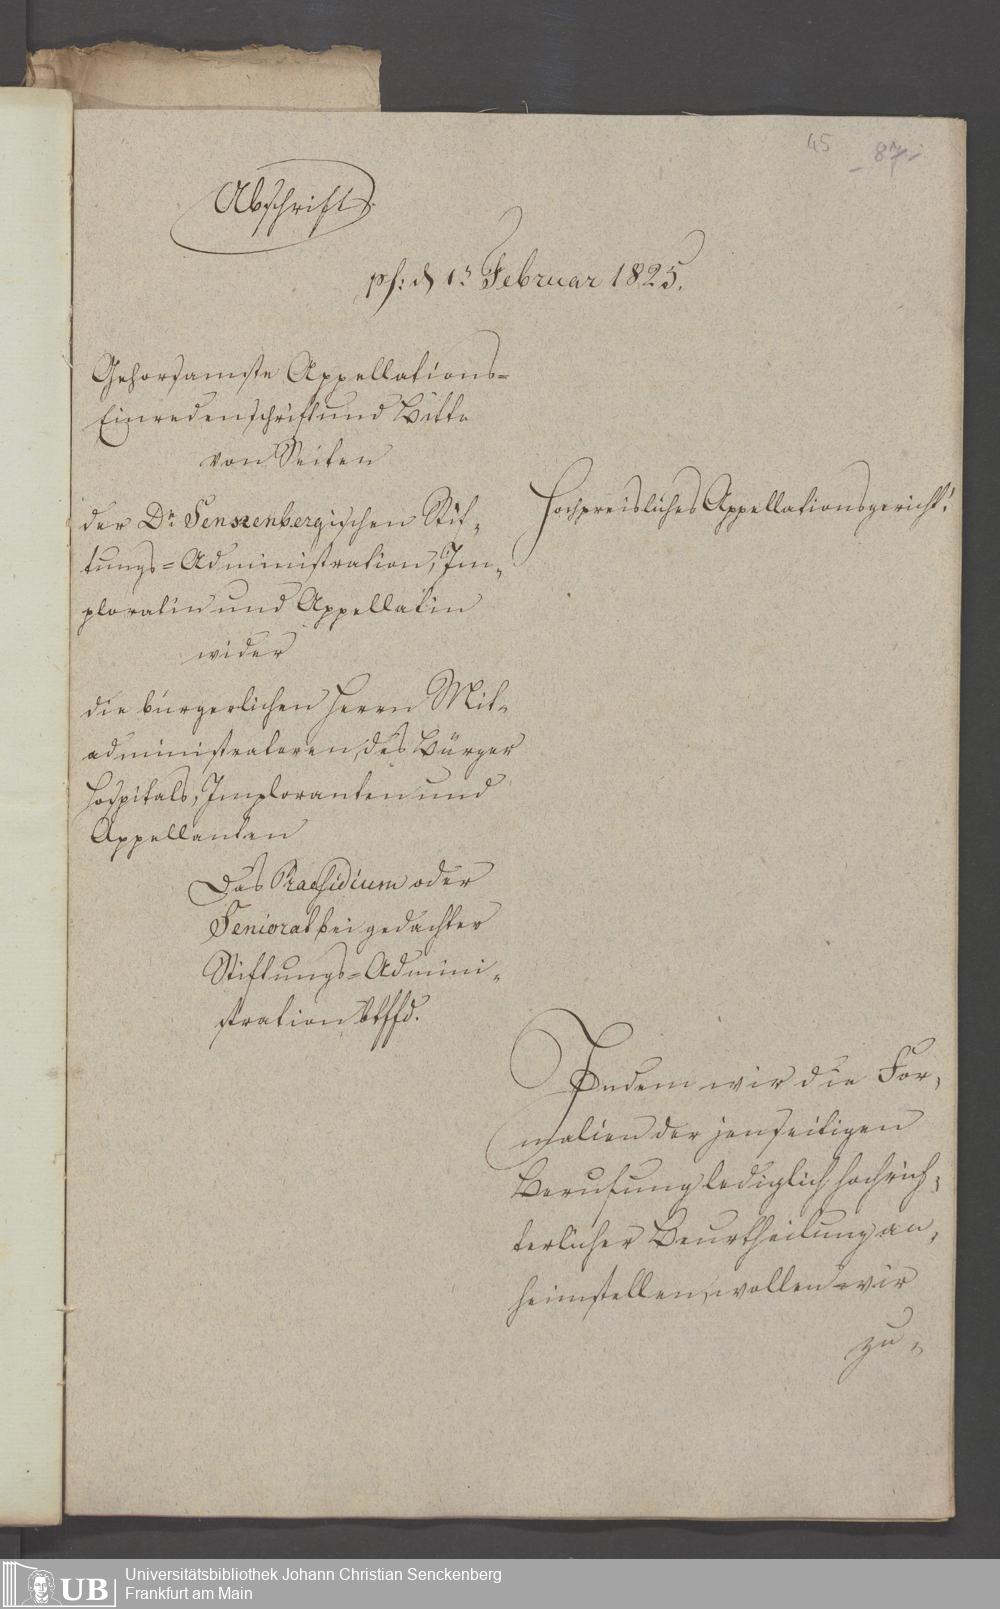 45 87
Abschrift.
ps: d 1n Februar 1825.
Gehorsamste Appellations=
Einredenschrift und Bitte
von Seiten
der Dr. Senckenbergischen Stif„
tungs=Administration, Im„
ploratin und Appellatin
wider
die bürgerlichen Herrn Mit„
administratoren des Bürger
Hospitals, Imploranten und
Appellanten
Das Praesidium oder
Seniorat bei gedachter
Stiftungs=Admini„
stration btffd.
Hochpreisliches Appellationsgericht!
Indem wir die For„
malien der jenseitigen
Berufung lediglich hochrich„
terlicher Beurtheilung an„
heimstellen, wollen wir
zu„
UB Universitätsbibliothek Johann Christian Senckenberg
Frankfurt am Main